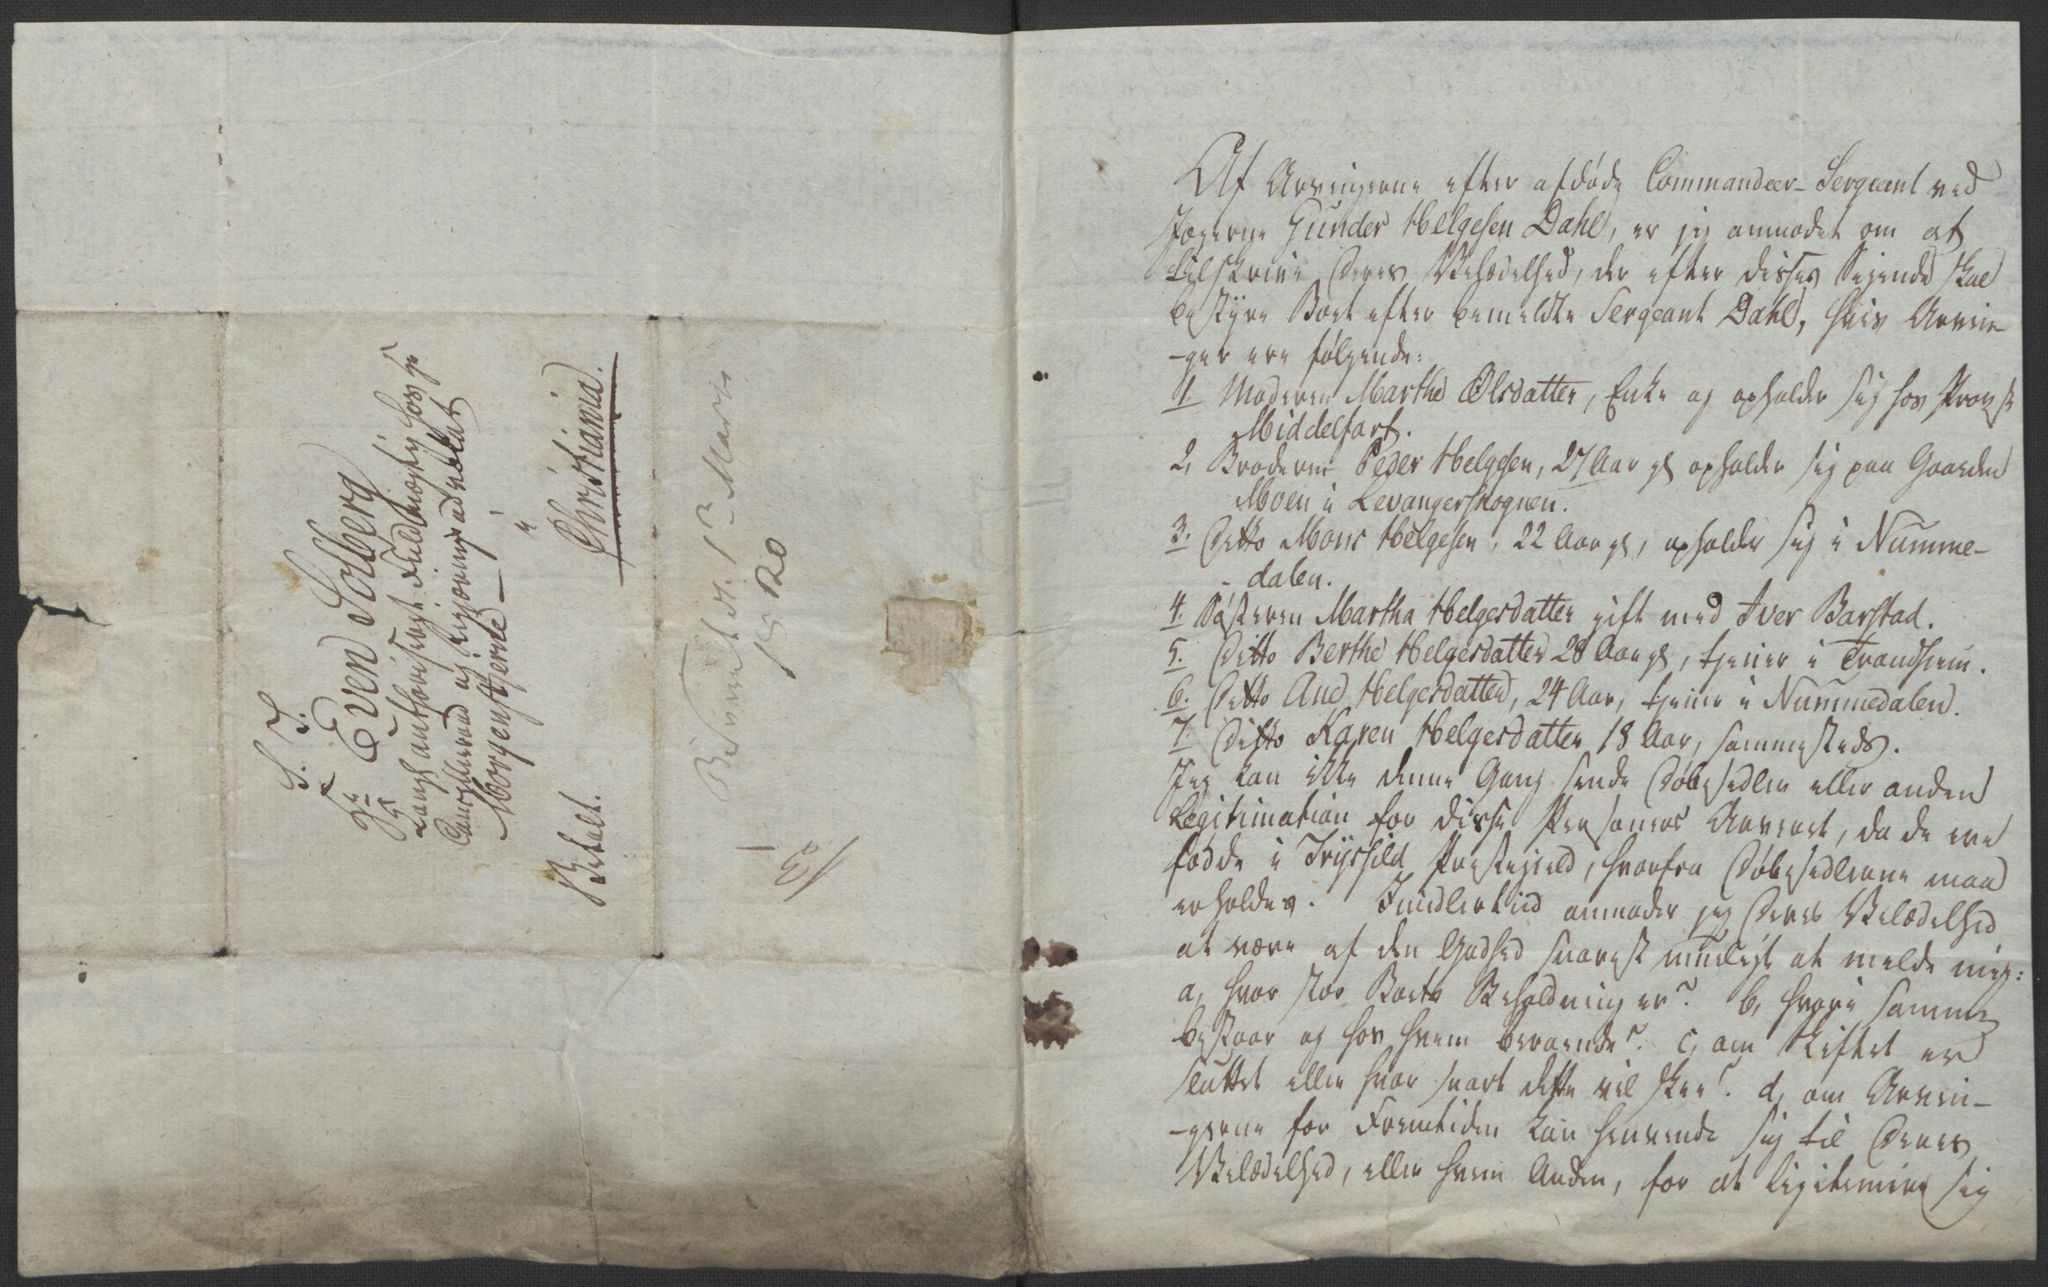 S. T.
Hr. Even Solberg
Christiania.
Betalt.
Besvaret d. 1ste Marts
1820
Af Arvingerne efter afdøde Commandeer-Sergeant ved
Jægerne Gunder Helgesen Dahl, er jeg anmodet om at
tilskrive Deres Velædelhed, der efter disses Sigende skal
bestyre Boet efter bemeldte Sergeant Dahl, hvis Arvin-
-ger ere følgende:
1. Moderen Marthe Olsdatter, Enke og opholder sig hos Provst
Middelfart.
2, Broderen Peder Helgesen, 27 Aar gl. opholder sig paa Gaarden
Moen i Levangerskognen.
3. Ditto Mons Helgesen, 22 Aar gl, opholder sig i Numme-
- dalen.
4. Søsteren Martha Helgesdatter gift med Iver Barstad.
5. Ditto Berthe Helgesdatter 28 Aar gl, tjener i Trondhiem.
6. Ditto Ane Helgesdatter, 24 Aar, tjener i Nummedalen.
7. Ditto Karen Helgesdatter 18 Aar, sammesteds.
Jeg kan ikke denne Gang sende Døbesedler eller anden
Legitimation for disse Personers Arveret, da de ere
fødde i Trysild Præstegield, hvorfra Døbesedlerne maa
erholdes. Imidlertid anmoder jeg Deres Velædelhed
at være af den Godhed snarest mueligt at melde mig:
a, hvor stor Boets Beholdning er? b, hvori samme
bestaaer og hos hvem beroende? c, om Skiftet er
sluttet eller hvor snart dette vil skee? d, om Arvin-
-gerne for Fremtiden kan henvende sig til Deres
Velædelhed, eller hvem Anden, for at legitimere sig